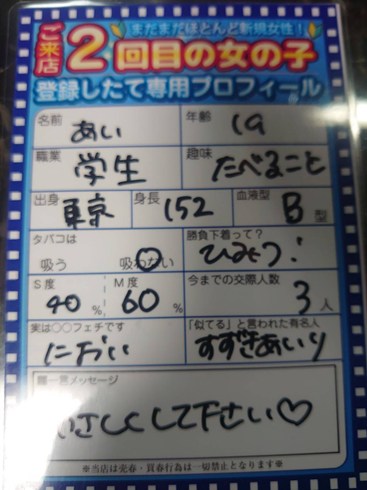 まだまだほとんど新規女性!
ご来店2回目の女の子
登録したて専用プロフィール
名前 あい 年齢 19
職業 学生 趣味 たべること
出身 東京 身長 152 血液型 B 型
タバコは 吸う 吸わない 勝負下着って? ひみつ!
S度 40% M度 60% 今までの交際人数 3人
実は○○フェチです におい 「似てる」と言われた有名人 すずきあいり
一言メッセージ
やさしくして下さい♡
※当店は売春・買春行為は一切禁止となります※